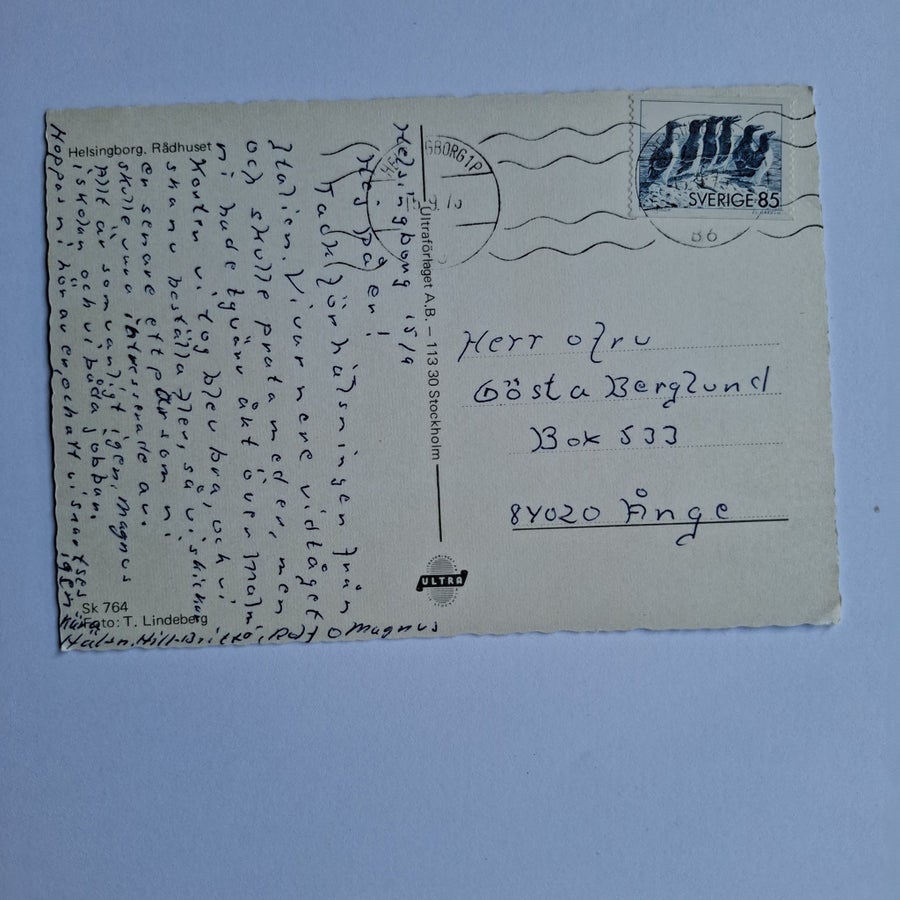 Helsingborg. Rådhuset
Helsingborg 15/9
Hej på er!
Tack för hälsningen från
Italien. Vi var nere vid tåget
och skulle prata med er, men
ni hade tyvärr åkt över Malmö
Korten vi tog blev bra, och vi
ska nu beställa fler, så vi skickar
en senare ett par som ni
skulle vara intresserade av.
Allt är som vanligt igen, Magnus
i skolan och vi båda jobbar.
Hoppas ni hör av er och att vi snart ses
igen
Hälsn. Hill-Britt, Rolf o Magnus
Sk 764
Foto: T. Lindeberg
Ultraförlaget A.B. – 113 30 Stockholm
ULTRA
GBORG 1P
SVERIGE 85
86
Herr o fru
Gösta Berglund
Box 533
84020 Ånge